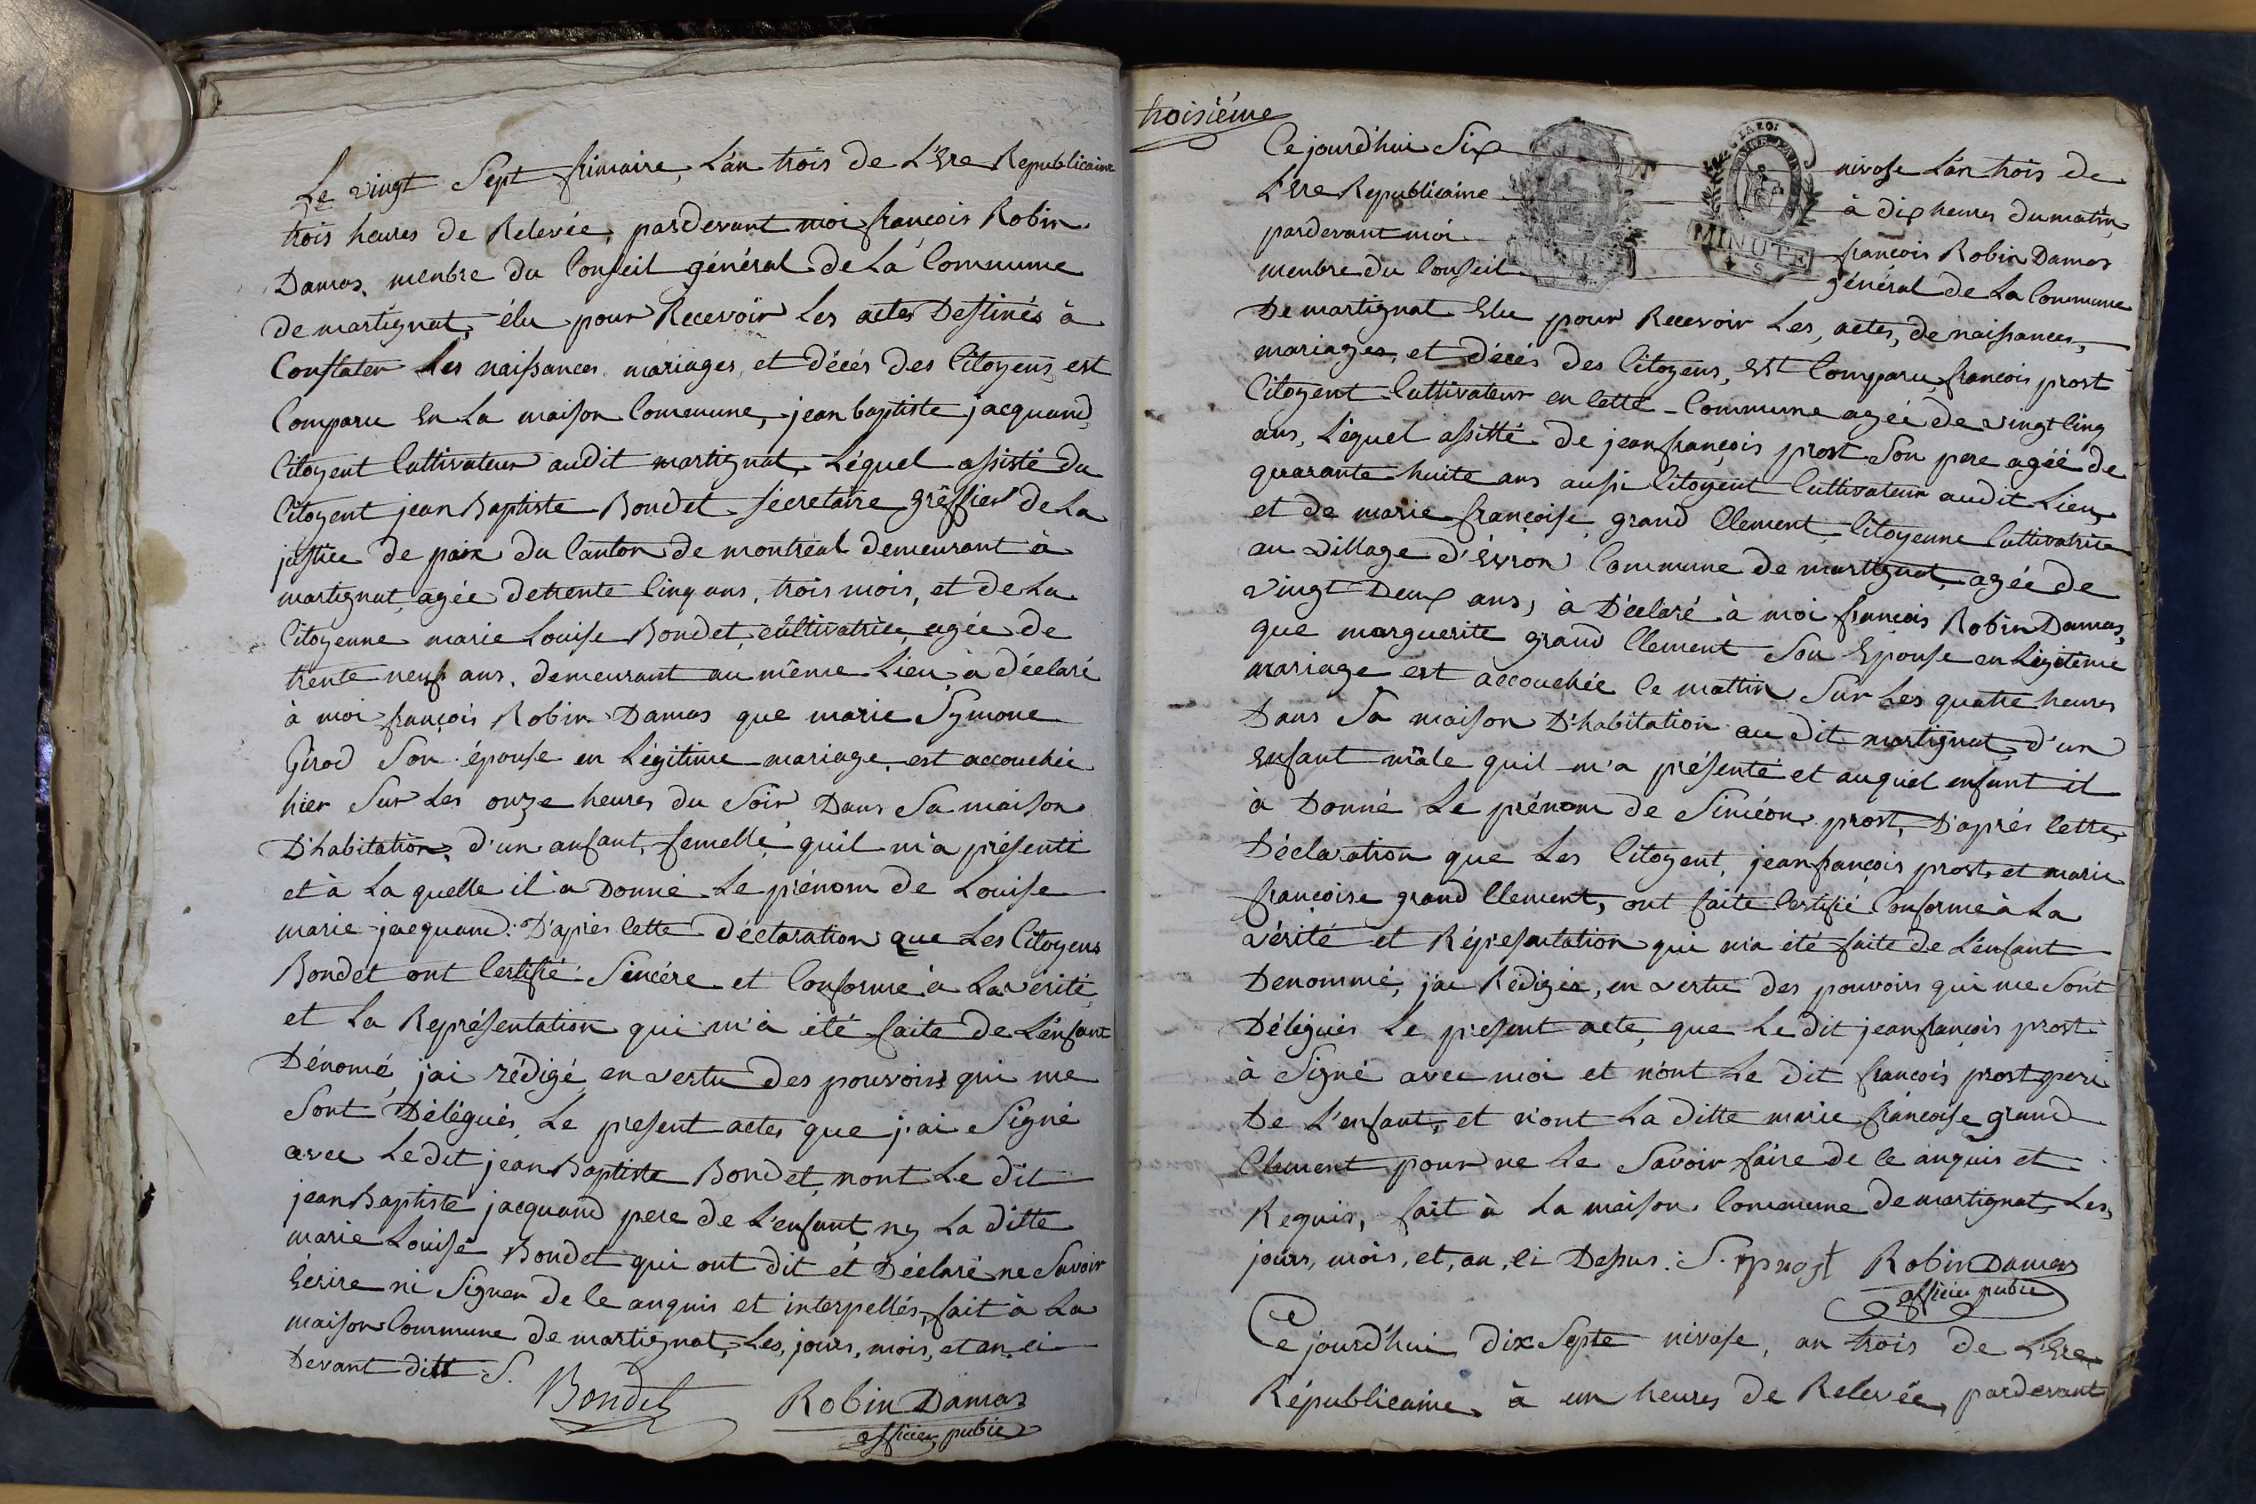 Le vingt Sept frimaire, L'an trois de L'Ere Republicaine
trois heures de Relevée, pardevant moi françois Robin
Damas, menbre du Conseil général de La Commune
de martignat, élu pour Recevoir Les actes Destinés à
Constater Les naissances, mariages, et décés des Citoyens, est
Comparu En La maison Commune, jean baptiste jacquand
Citoyent Cultivateur audit martignat, Léquel assisté du
Citoyent jean Baptiste Bondet sécretaire gréffier de La
justice de paix du Canton de montréal demeurant à
martignat, agée de trente Cinq ans, trois mois, et de La
Citoyenne marie Louise Bondet, cultivatrice, agée de
trente neuf ans, demeurant au même Lieu, à déclaré
à moi françois Robin Damas que marie Symone
Girod Son épouse en Légitime mariage, est accouchée
hier Sur Les onze heures du Soir, Dans Sa maison
D'habitation, d'un anfant, femelle, quil m'a présenti
et à La quelle il a Donné Le prénom de Louise
marie jacquand. D'après Cette déclaration que Les Citoyens
Bondet ont Certifié Sincére et Conforme à La vérité,
et La Représentation qui m'a été faite de L'enfant
Dénomé, jai rédigé en vertu des pouvoirs qui me
Sont Délégués, Le present actes que j'ai Signé
avec Ledit jean Baptiste Bondet, nont Le dit
jean Baptiste jacquand pere de L'enfant, ny La ditte
marie Louise Bondet qui ont dit et Déclaré ne Savoir
Ecrire ni Signer de Ce anquis et interpellés, fait à La
maison Commune de martignat, Les, jours, mois, et an, ci
Devant ditt S.
Bondet Robin Damas
officier pubic
troisiéme
Ce jourd'hui Six nivose L'an trois de
L'Ere Republicaine à dix heures du matin,
pardevant moi françois Robin Damas
menbre du Conseil général de La Commune
MINUTE
De martignat Elu pour Recevoir Les, actes, de naissances,
mariages, et décés des Citoyens, Est Comparu, françois prost
Citoyent Cultivateur en Cette Commune agée de vingt Cinq
ans, Léquel assitté de jean françois prost Son pere agéé de
quarante huite ans aussi Citoyent Cultivateur audit Lieu,
et de marie françoise grand Clement Citoyenne Cultivatrice
au village d'Evron Commune de martignat, agée de
vingt Deux ans, à Déclaré à moi françois Robin Damas,
que marguerite grand Clement Son Epouse en Légitime
mariage est accouchée Ce mattin Sur Les quatre heures
Dans Sa maison D'habitation au dit martignat, d'un
Enfant mâle quil m'a présenté et auquel enfant il
à Donné Le prénom de Siméon prost, D'aprés Cette
Déclaration que Les Citoyent, jean françois prost, et marie
françoise grand Clement, ont faite Certifié Conforme à La
vérité et Réprésentation qui m'a été faite de L'énfant
Denommé, jai Rédigée, en vertu des pouvoirs qui me Sont
Délégués Le present acte, que Le dit jean françois prost
à Signé avec moi et nónt Le dit françois prost pere
De L'enfant, et nont La ditte marie françoise grand
Clement pour ne Le Savoir faire de Ce anquis et
Requis, fait à La maison Commune de martignat, Les,
jours, mois, et, an, ci Dessus: S. prost Robin Damas
officier pubic
Ce jourd'hui dix Septe nivose, an trois de L'Ere
Républicaine, à un heures de Relevée, pardevant